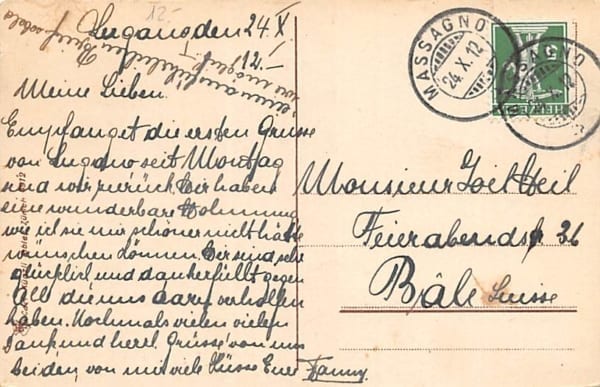 Lugano den 24. X
12.-
Meine Lieben.
Empfanget die ersten Grüsse
von Lugano seit Montag
sind wir zurück Wir haben
eine wunderbare Wohnung
wie ich sie mir schöner nicht hätte
wünschen können. Wir sind sehr
glücklich und dankerfüllt gegen
All die uns dazu verholfen
haben. Nochmals vielen vielen
Dank und herzl. Grüsse von uns
beiden, von mit viele Küsse Eure Fanny.
einen ausführlichen Brief sobald
wie möglich
12.-
MASSAGNO
24.X.12
MASSAGNO
HELVETIA
5
Monsieur Joël Weil
Feierabendstr 26
Bâle Suisse